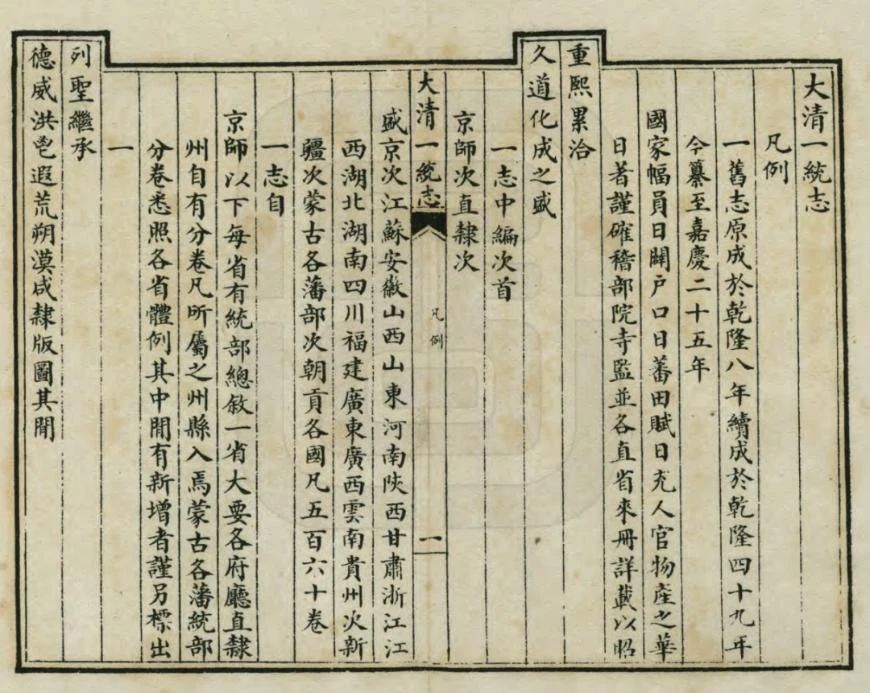 大清一統志
凡例
一舊志原成於乾隆八年續成於乾隆四十九年
今纂至嘉慶二十五年
國家幅員日闢戶口日蕃田賦日充人官物産之華
日著謹確稽部院寺監並各直省來冊詳載以昭
重熙累洽
久道化成之盛
一志中編次首
京師次直隸次
大清一統志
凡例
一
盛京次江蘇安徽山西山東河南陝西甘肅浙江江
西湖北湖南四川福建廣東廣西雲南貴州次新
疆次蒙古各藩部次朝貢各國凡五百六十卷
一志自
京師以下每省有統部總敘一省大要各府廳直隸
州自有分卷凡所屬之州縣入焉蒙古各藩統部
分卷悉照各省體例其中閒有新增者謹另標出
一
列聖繼承
德威洪鬯遐荒朔漠咸隸版圖其閒